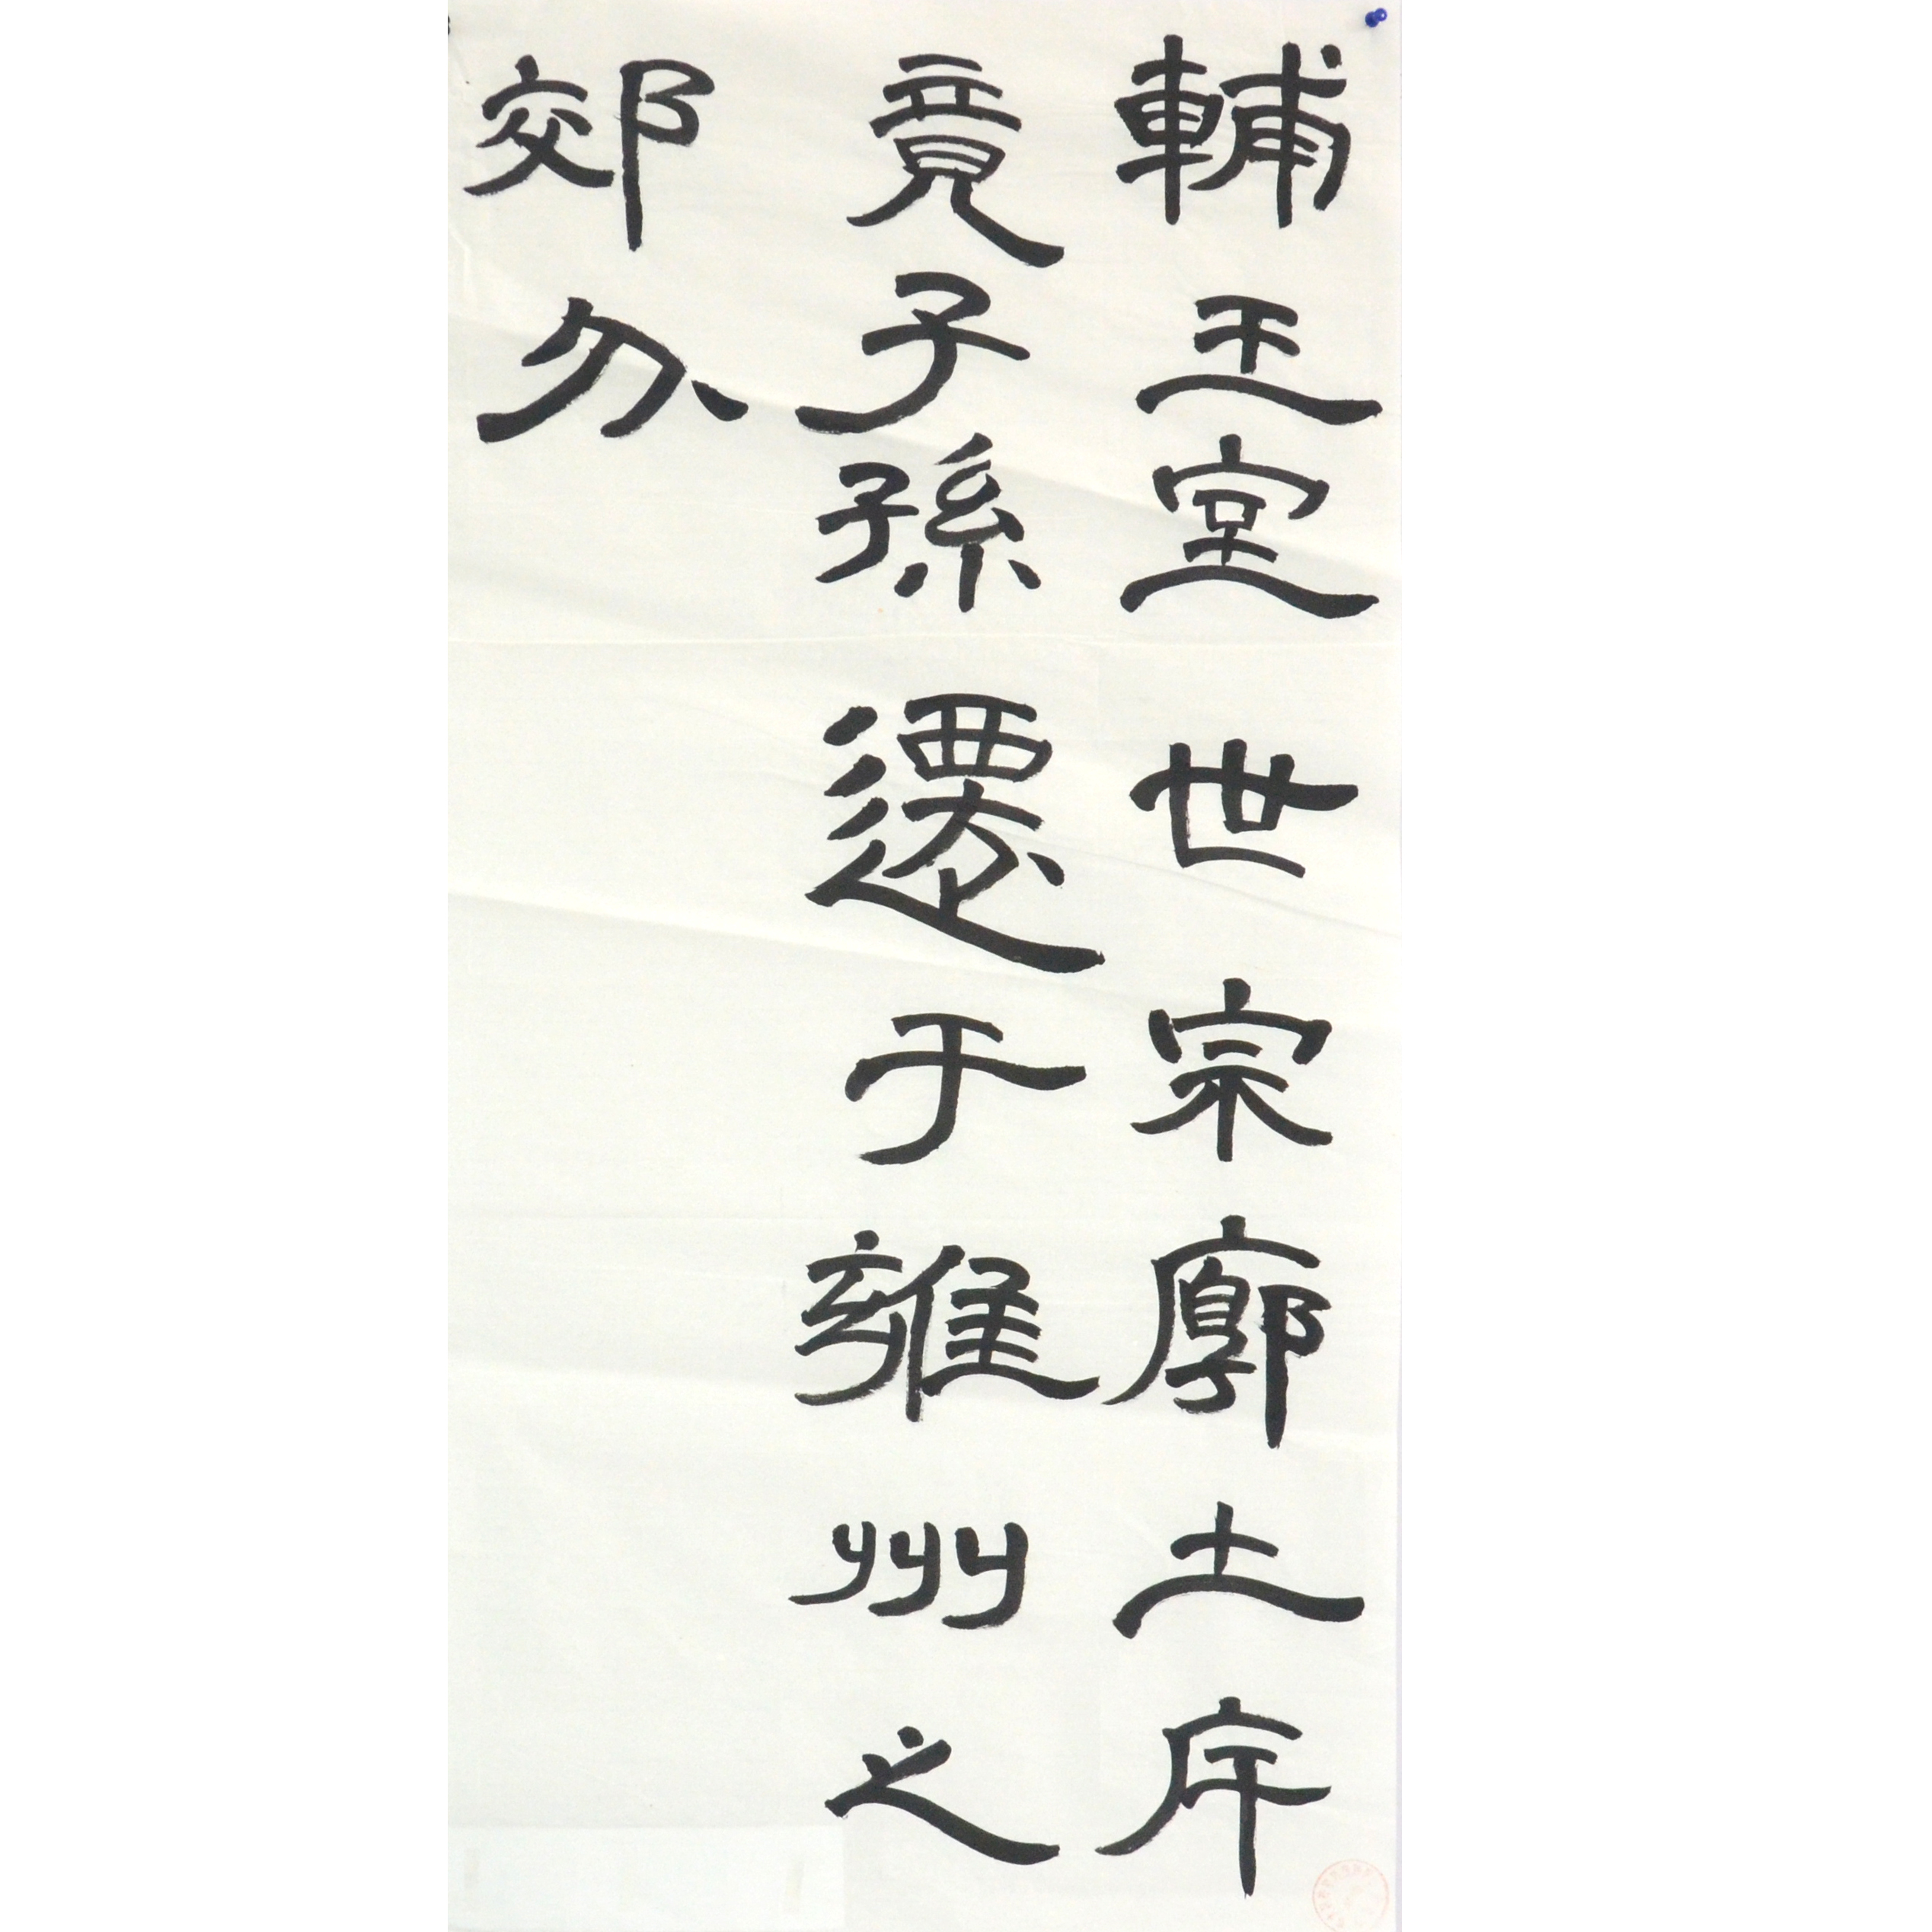 輔王室世宗廓土斥
竟子孫遷于雍州之
郊分